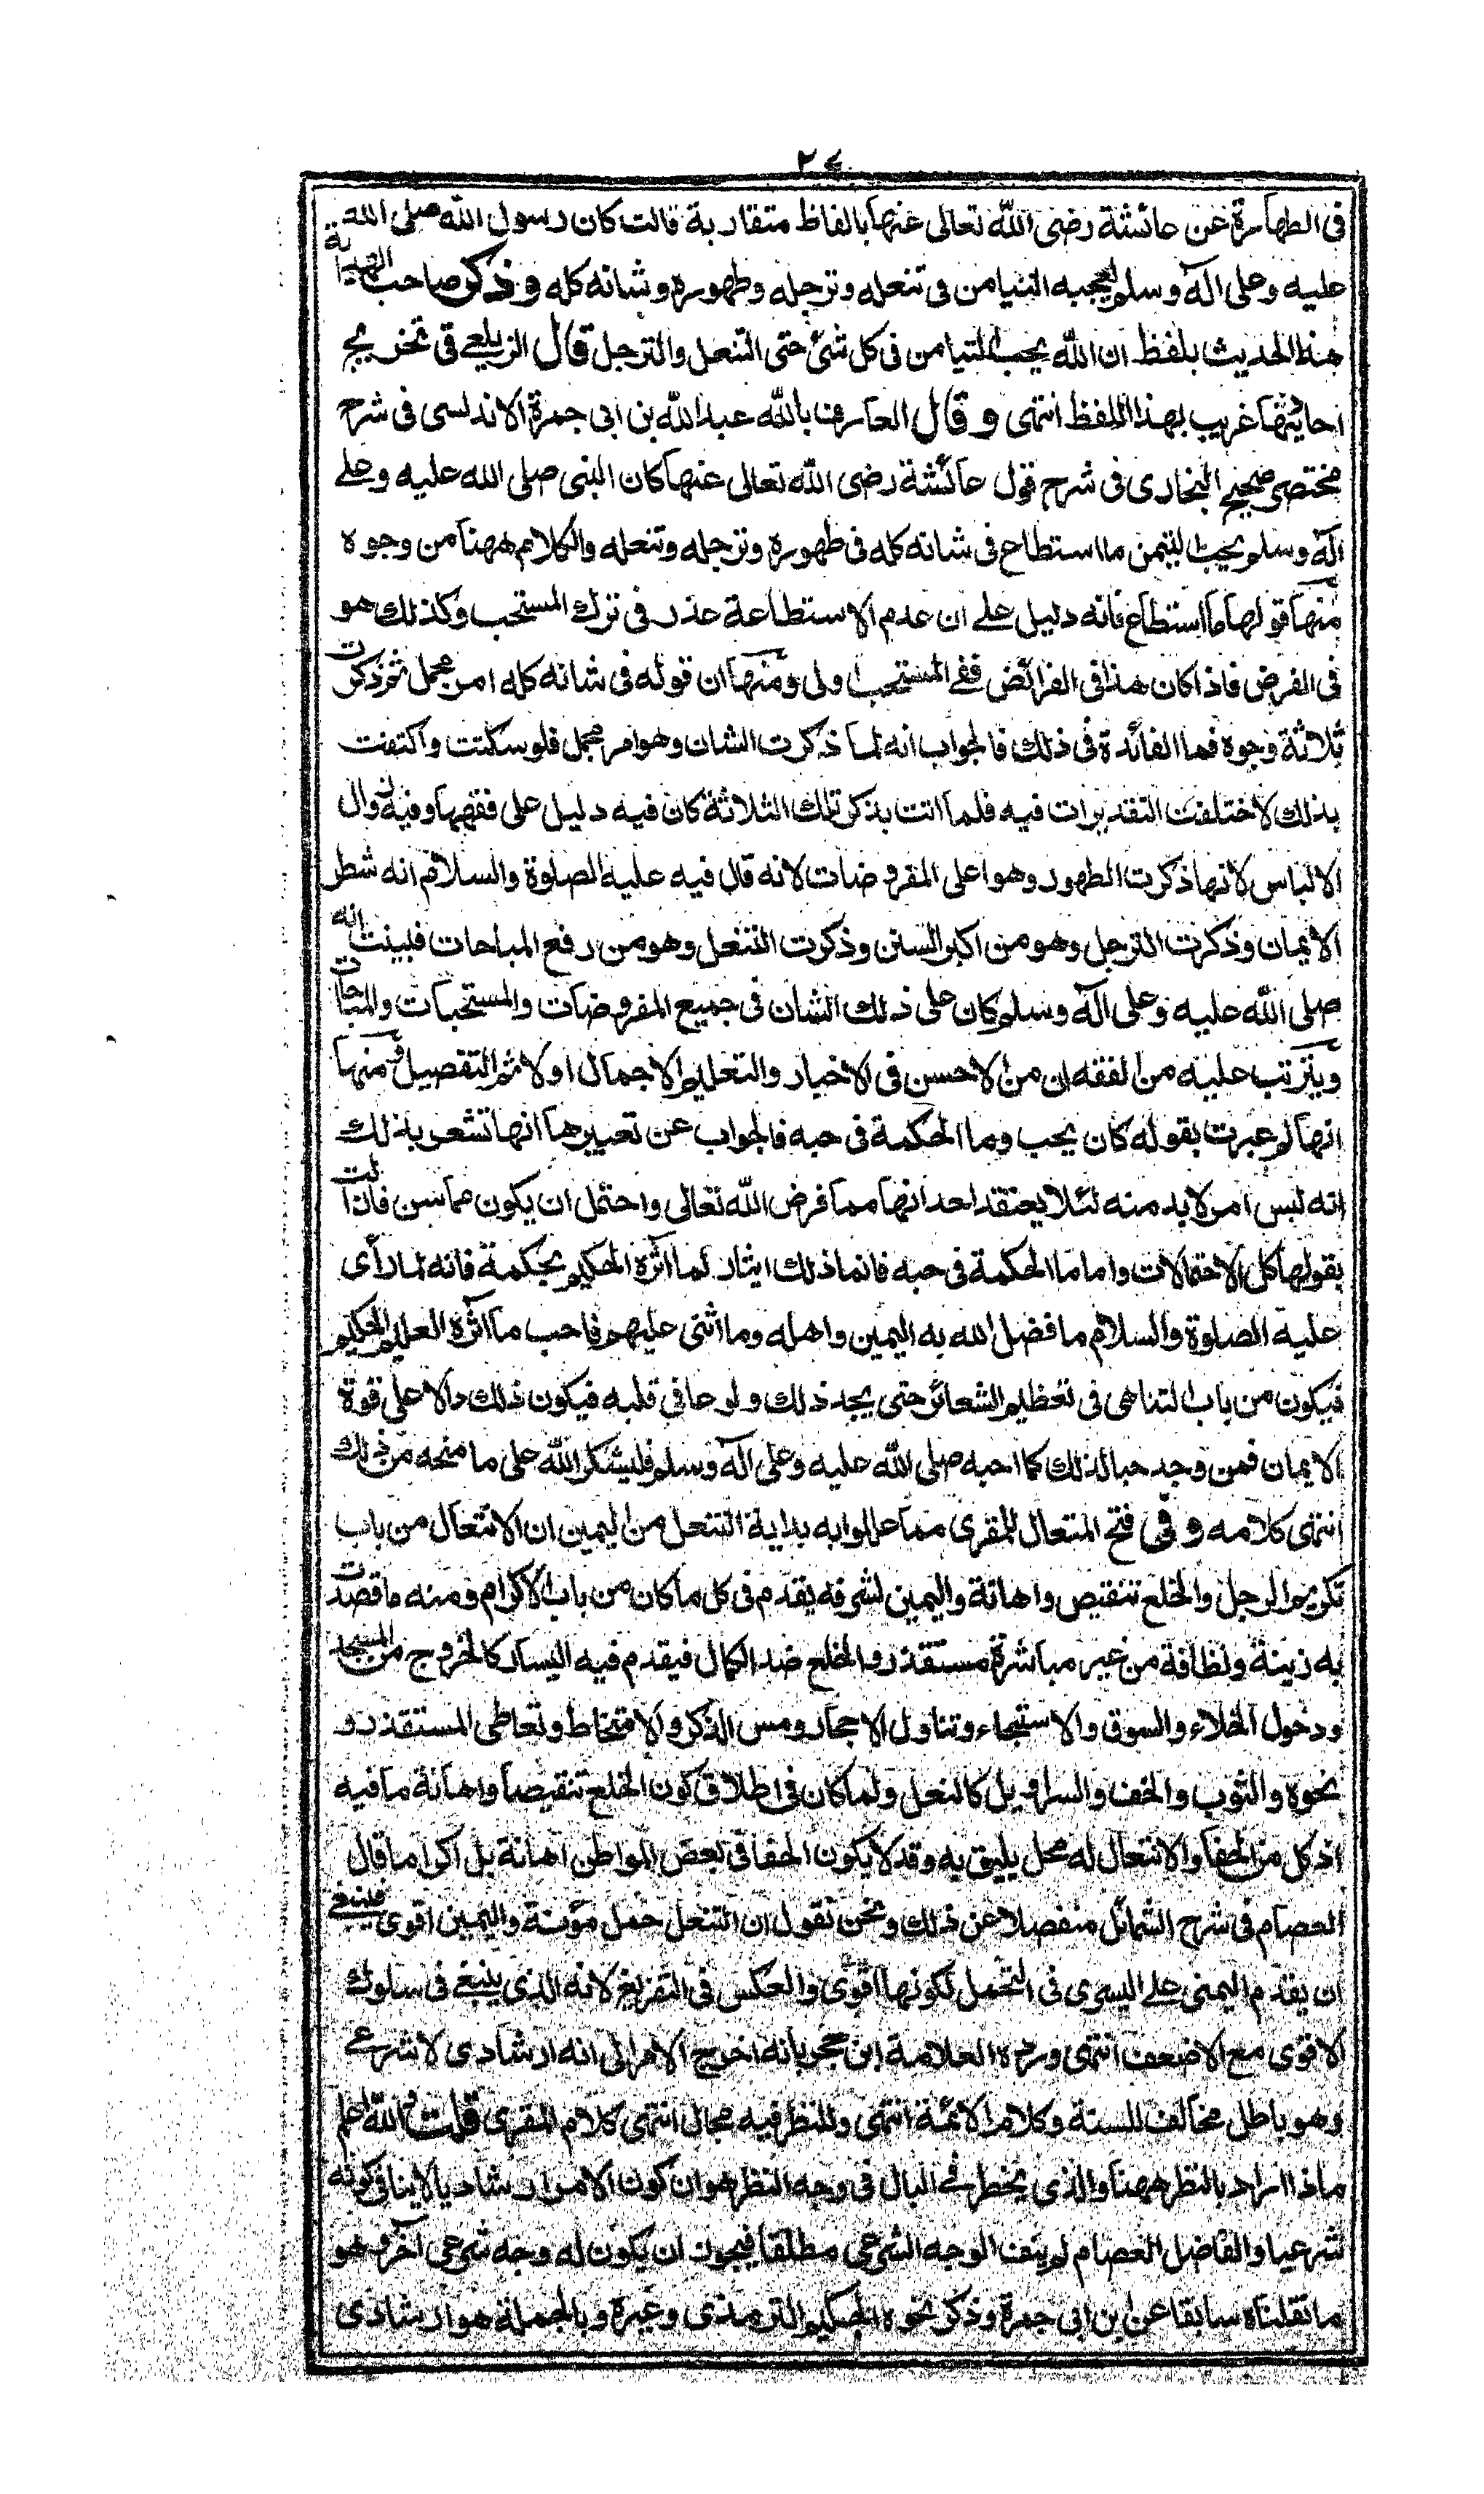 ٢٤
فى الطهارة عن عائشة رضى الله تعالى عنها بالفاظ متقاربة قالت كان رسول الله صلى الله
عليه وعلى آله وسلم يعجبه التيامن فى تنعله وترجله وطهوره وشانه كله وذكر صاحب الهداية
هذا الحديث بلفظ ان الله يحب التيامن فى كل شئ حتى التنعل والترجل قال الزيلعى فى تخريج
احاديثها غريب بهذا اللفظ انتهى وقال العارف بالله عبد الله بن ابى جمرة الاندلسى فى شرح
مختصر صحيح البخارى فى شرح قول عائشة رضى الله تعالى عنها كان النبى صلى الله عليه وعلى
آله وسلم يحب التيمن ما استطاع فى شانه كله فى طهوره وترجله وتنعله والكلام ههنا من وجوه
منها قولها ما استطاع فانه دليل على ان عدم الاستطاعة عذر فى ترك المستحب وكذلك هو
فى الفرض فاذا كان هذا فى الفرائض ففى المستحب اولى ومنها ان قوله فى شانه كله امر مجمل ثم ذكرت
ثلاثة وجوه فما الفائدة فى ذلك فالجواب انه لما ذكرت الشان وهو امر مجمل فلو سكتت واكتفت
بذلك لاختلفت التقديرات فيه فلما اتت بذكر تلك الثلاثة كان فيه دليل على فقهها وفيه زوال
الالباس لانها ذكرت الطهور وهو اعلى المفروضات لانه قال فيه عليه الصلوة والسلام انه شطر
الايمان وذكرت الترجل وهو من اكبر السنن وذكرت التنعل وهو من رفع المباحات فبينت انه
صلى الله عليه وعلى آله وسلم كان على ذلك الشان فى جميع المفروضات والمستحبات والمباحات
ويترتب عليه من الفقه ان من الاحسن فى الاخبار والتعليم الاجمال اولا ثم التفصيل ومنها
انها لم عبرت بقوله كان يحب وما الحكمة فى حبه فالجواب عن تعبيرها انها تشعر بذلك
انه ليس امر لابد منه لئلا يعتقد احد انها مما فرض الله تعالى واحتمل ان يكون مما سن فازالت
بقولها كل الاحتمالات واما ما الحكمة فى حبه فانما ذلك ايثار لما آثره الحكيم بحكمة فانه لما رأى
عليه الصلوة والسلام ما فضل الله به اليمين واهله وما اثنى عليهم فاحب ما آثره العليم الحكيم
فيكون من باب التناهى فى تعظيم الشعائر حتى يجد ذلك ولوحا فى قلبه فيكون ذلك دالا على قوة
الايمان فمن وجد حبا لذلك كما احبه صلى الله عليه وعلى آله وسلم فليشكر الله على ما منحه من ذلك
انتهى كلامه وفى فتح المتعال للمقرى مما عللوا به بداية التنعل من اليمين ان الانتعال من باب
تكريم الرجل والخلع تنقيص واهانة واليمين لشرفه يقدم فى كل ما كان من باب الاكرام ومنه ما قصدت
به زينة ونظافة من غير مباشرة مستقذر والخلع ضد الكمال فيقدم فيه اليسار كالخروج من المسجد
ودخول الخلاء والسوق والاستنجاء وتناول الاحجار ومس الذكر والامتخاط وتعاطى المستقذر و
نحوه والثوب والخف والسراويل كالنعل ولما كان فى اطلاق كون الخلع تنقيصا واهانة ما فيه
اذ كل من الحفا والانتعال له محل يليق به وقد لا يكون الحفا فى بعض المواطن اهانة بل اكراما قال
العصام فى شرح الشمائل منفصلا عن ذلك ونحن نقول ان التنعل حمل مؤنة واليمين اقوى فينبغى
ان يقدم اليمنى على اليسرى فى التحمل لكونها اقوى والعكس فى التفريغ لانه الذى ينبغى فى سلوك
الاقوى مع الاضعف انتهى ورده العلامة ابن حجر بانه اخرج الامر الى انه ارشادى لا شرعى
وهو باطل مخالف للسنة وكلام الائمة انتهى وللنظر فيه مجال انتهى كلام المقرى قلت والله اعلم
ماذا اراد بالنظر ههنا والذى يخطر فى البال فى وجه النظر هو ان كون الامر ارشاديا لا ينافى كونه
شرعيا والفاضل العصام لم ينف الوجه الشرعى مطلقا فيجوز ان يكون له وجه شرعى آخر وهو
ما نقلناه سابقا عن ابن ابى جمرة وذكر نحوه الحكيم الترمذى وغيره وبالجملة هو ارشادى